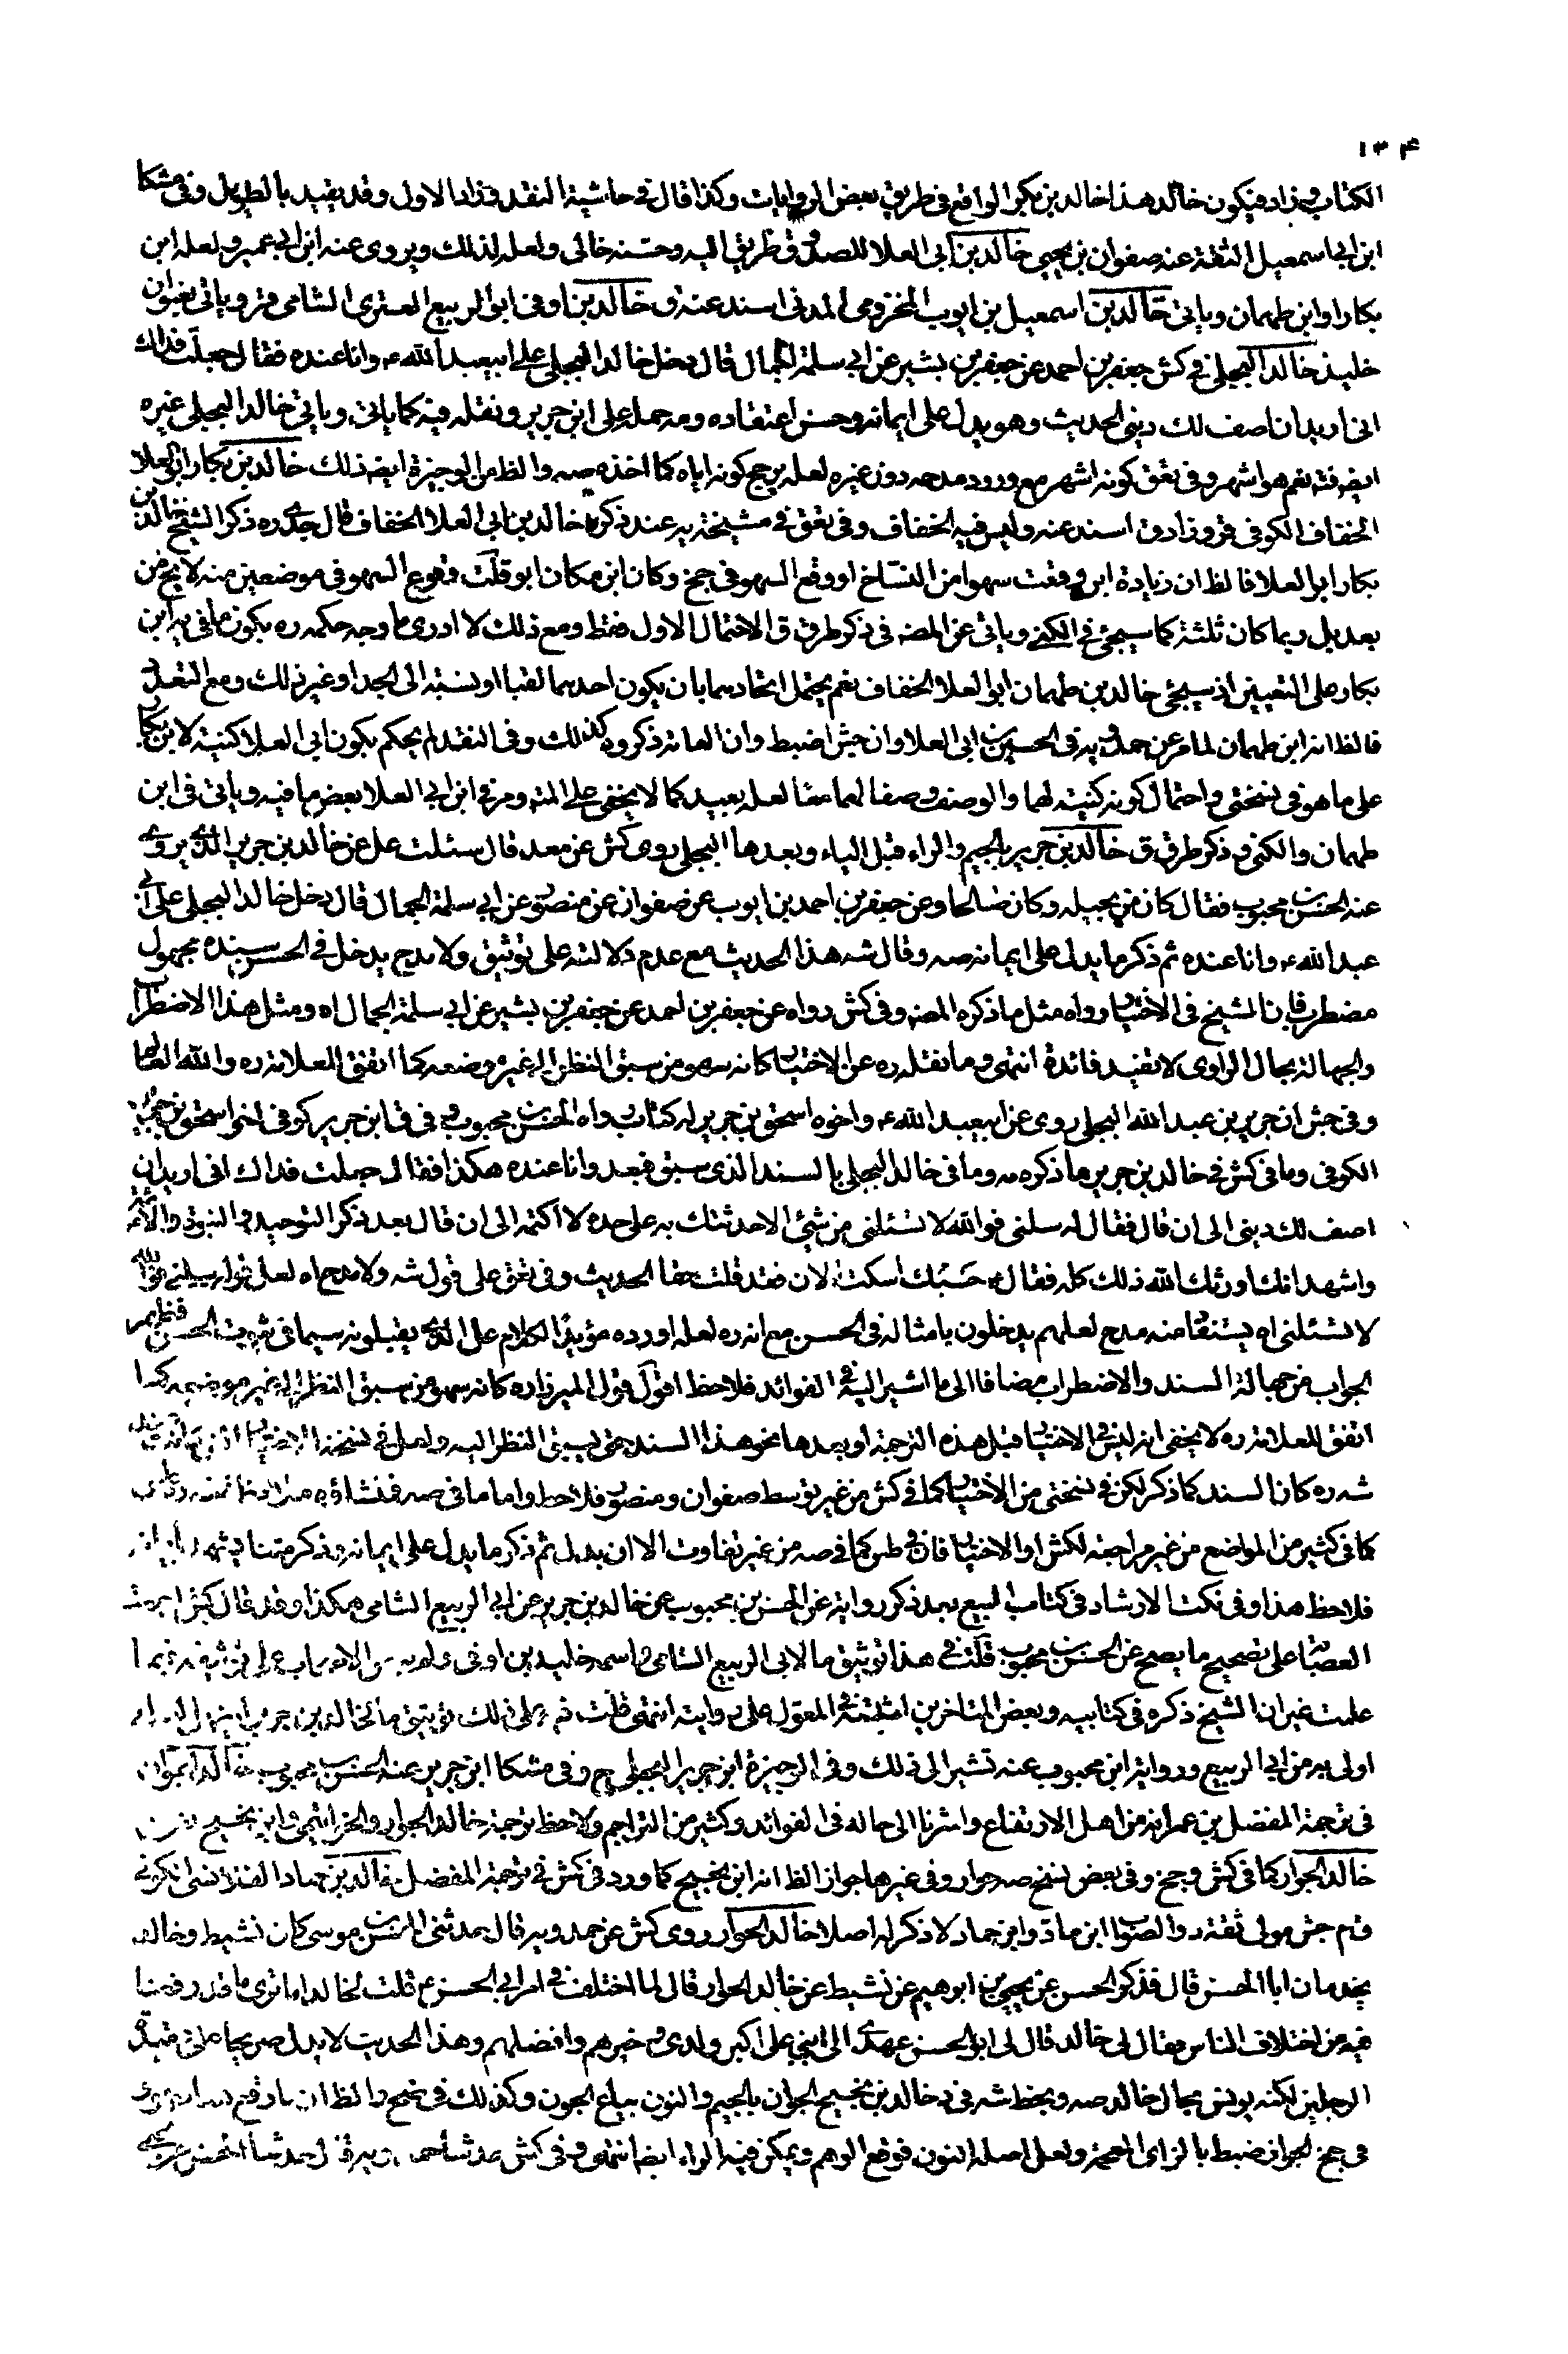 ١٣۴
الكتاب وزاد فيكون خالد هذا خالد بن بكير الواقع في طريق بعض الروايات وكذا قال في حاشية النقد وزاد الاول وقد يقيد بالطويل وفي مشكا
ابن ابي اسمعيل الثقة عنه صفوان بن يحيى خالد بن ابي العلا للصدوق طريق اليه وحسنه خالي ولعله لذلك ويروى عنه ابن ابي عمير ولعله ابن
بكار او ابن طهمان وياتي خالد بن اسمعيل بن ايوب المخزومي المدني اسند عنه ق خالد بن اوفى ابو الربيع العنزي الشامي قر وياتي بعنوان
خليد خالد البجلي في كش جعفر بن احمد عن جعفر بن بشير عن ابي سلمة الجمال قال دخل خالد البجلي على ابيعبد الله ء وانا عنده فقال جعلت فداك
انى اريد ان اصف لك دينى الحديث وهو يدل على ايمانه وحسن اعتقاده ومه حمله على ابن جرير ونقله فيه كما ياتى وياتى خالد البجلى غيره
ايضا فته نعم هو اشهر وفى تعق كونه اشهر مع ورود مدحه دون غيره لعله يرجح كونه اياه كما اخذه صه والظ من الوجيزة ايضا ذلك خالد بن بكار ابو العلا
الخفاف الكوفى قر وزاد ق اسند عنه وليس فيه الخفاف وفى تعق في مشيخة يه عند ذكره خالد بن ابى العلا الخفاف قال جدى ره ذكر الشيخ خالد بن
بكار ابو العلا فالظ ان زيادة ابن وقعت سهوا من النساخ او وقع السهو فى جخ وكان ابن مكان ابو قلت وقوع السهو فى موضعين منه لا يخ من
بعد بل ربما كان ثلثة كما سيجئ في الكنى وياتى عن المصه فى ذكر طرق ق الاحتمال الاول فقط ومع ذلك لا ادرى ما وجه حكمه ره بكون ما فى يه ابن
بكار على التعيين اذ سيجئ خالد بن طهمان ابو العلا الخفاف نعم يحتمل اتحادهما بان يكون احدهما لقبا او نسبة الى الجد او غير ذلك ومع التعدد
فالظ انه ابن طهمان لما مر عن حمدويه فى الحسين بن ابى العلا وان جش اضبط وان العامة ذكروه كذلك وفى النقد لم يحكم بكون ابى العلا كنية لابن بكار
على ما هو فى نسختى واحتمال كونه كنية لهما والوصف وصفا لهما معا لعله بعيد كما لا يخفى على المتـ ومر في ابن ابى العلا بعض ما فيه وياتى فى ابن
طهمان والكنى وذكر طرق ق خالد بن جرير بالجيم والراء قبل الياء وبعدها البجلى روى كش عن معد قال سئلت على عن خالد بن جرير الذى يروى
عنه الحسن بن محبوب فقال كان من بجيله وكان صالحا وعن جعفر بن احمد بن ايوب عن صفوان عن منصور عن ابى سلمة الجمال قال دخل خالد البجلى على ابى
عبد الله ء وانا عنده ثم ذكر ما يدل على ايمانه صه وقال شه هذا الحديث مع عدم دلالته على توثيق ولا مدح يدخل فى الحسن سنده مجهول
مضطرب فان الشيخ فى الاختيار رواه مثل ما ذكره المصه وفى كش رواه عن جعفر بن احمد عن جعفر بن بشير عن ابى سلمة الجمال اه ومثل هذا الاضطراب
والجهالة بحال الراوى لا تفيد فائدة انتهى وما نقله ره عن الاختيار كانه سهو من سبق النظر الى غير موضعه كما اتفق للعلامة ره والله العالم
وفى جش ان جرير بن عبد الله البجلى روى عن ابيعبد الله ء واخوه اسحق بن جرير له كتاب رواه الحسن بن محبوب وفى ق ابن جرير كوفى اخو اسحق بن جرير
الكوفى وما فى كش فى خالد بن جرير ما ذكره صه وما فى خالد البجلى بالسند الذى سبق فبعد وانا عنده هكذا فقال جعلت فداك انى اريد ان
اصف لك دينى الى ان قال فقال له سلنى فو الله لا تسئلنى عن شئ الا حدثتك به على حده لا اكتمه الى ان قال بعد ذكر التوحيد والنبوة والائمة
واشهد انك اورثك الله ذلك كله فقال ء حسبك اسكت الان فقد قلت حقا الحديث وفى تعق على قول شه ولا مدح اه لعل قوله سلنى فو الله
لا تسئلنى اه يستفاد منه مدح لعلهم يدخلون بامثاله فى الحسن مع انه ره لعله اورده مؤيدا للكلام على الذى يقبلونه سيما فى تقوية الحسن فظهر
الجواب عن جهالة السند والاضطراب مضافا الى ما اشير اليه فى الفوائد فلاحظ اقول قول الميرزا ره كانه سهو من سبق النظر الى غير موضعه كما
اتفق للعلامة ره لا يخفى انه ليس فى الاختيار قبل هذه الترجمة او بعدها نحو هذا السند حتى يسبق النظر اليه ولعل فى نسخة الاختيار
شه ره كان السند كما ذكر لكن فى نسختى من الاختيار كما فى كش من غير توسط صفوان ومنصور فلاحظ واما ما فى صه فمنشاؤه
كما فى كثير من المواضع من غير مراجعة لكش او الاختيار فان فى طس كما فى صه من غير تفاوت الا ان بدل ثم ذكر ما يدل على ايمانه وذكر متنا يشهد
فلاحظ هذا وفى نكت الارشاد فى كتاب البيع بعد ذكر رواية عن الحسن بن محبوب عن خالد بن جرير عن ابى الربيع الشامى هكذا وقد قال كش اجمعت
العصابة على تصحيح ما يصح عن الحسن بن محبوب قلت فى هذا توثيق ما لابى الربيع الشامى واسمه خليد بن اوفى
علمت غير ان الشيخ ذكره فى كتابيه وبعض المتاخرين اثبته فى المعول على روايته انتهى قلت فعلى ذلك توثيق ما لخالد بن جرير
اولى به من ابى الربيع ورواية ابن محبوب عنه تشير الى ذلك وفى الوجيزة ابن جرير البجلى ح وفى مشكا ابن جرير عنه الحسن بن محبوب خالد الجوان
فى ترجمة المفضل بن عمر انه من اهل الارتفاع واشرنا الى حاله فى الفوائد وكثير من التراجم ولاحظ ترجمة خالد الجوار والخزاز وابن نجيح
خالد الجوار كما فى كش وجخ وفى بعض نسخ صه حوار وفى غيرها جواز الظ انه ابن نجيح كما ورد فى كش فى ترجمة المفضل خالد بن حماد القلانسى الكوفى
ق م جش مولى ثقة د والصواب ابن ماد وابن حماد لا ذكر له اصلا خالد الحوار روى كش عن حمدويه قال حدثنى الحسن بن موسى كان نشيط وخالد
يخدمان ابا الحسن قال فذكر الحسن عن يحيى بن ابرهيم عن نشيط عن خالد الحوار قال لما اختلف فى امر ابى الحسن ع قلت لخالد اما ترى ما قد وقعنا
فيه من اختلاف الناس فقال لى خالد قال لى ابو الحسن عهدى الى ابنى على اكبر ولدى وخيرهم وافضلهم وهذا الحديث لا يدل صريحا على عقيدة
الرجلين لكنه يونس بحال خالد صه وبخط شه فى د خالد بن نجيح الجوان بالجيم والنون بياع الجون وكذلك فى
فى جخ الجواز ضبط بالزاى المعجمة ولعل اصله النون فوقع الوهم ويمكن فيه الراء ايضا انتهى وفى كش